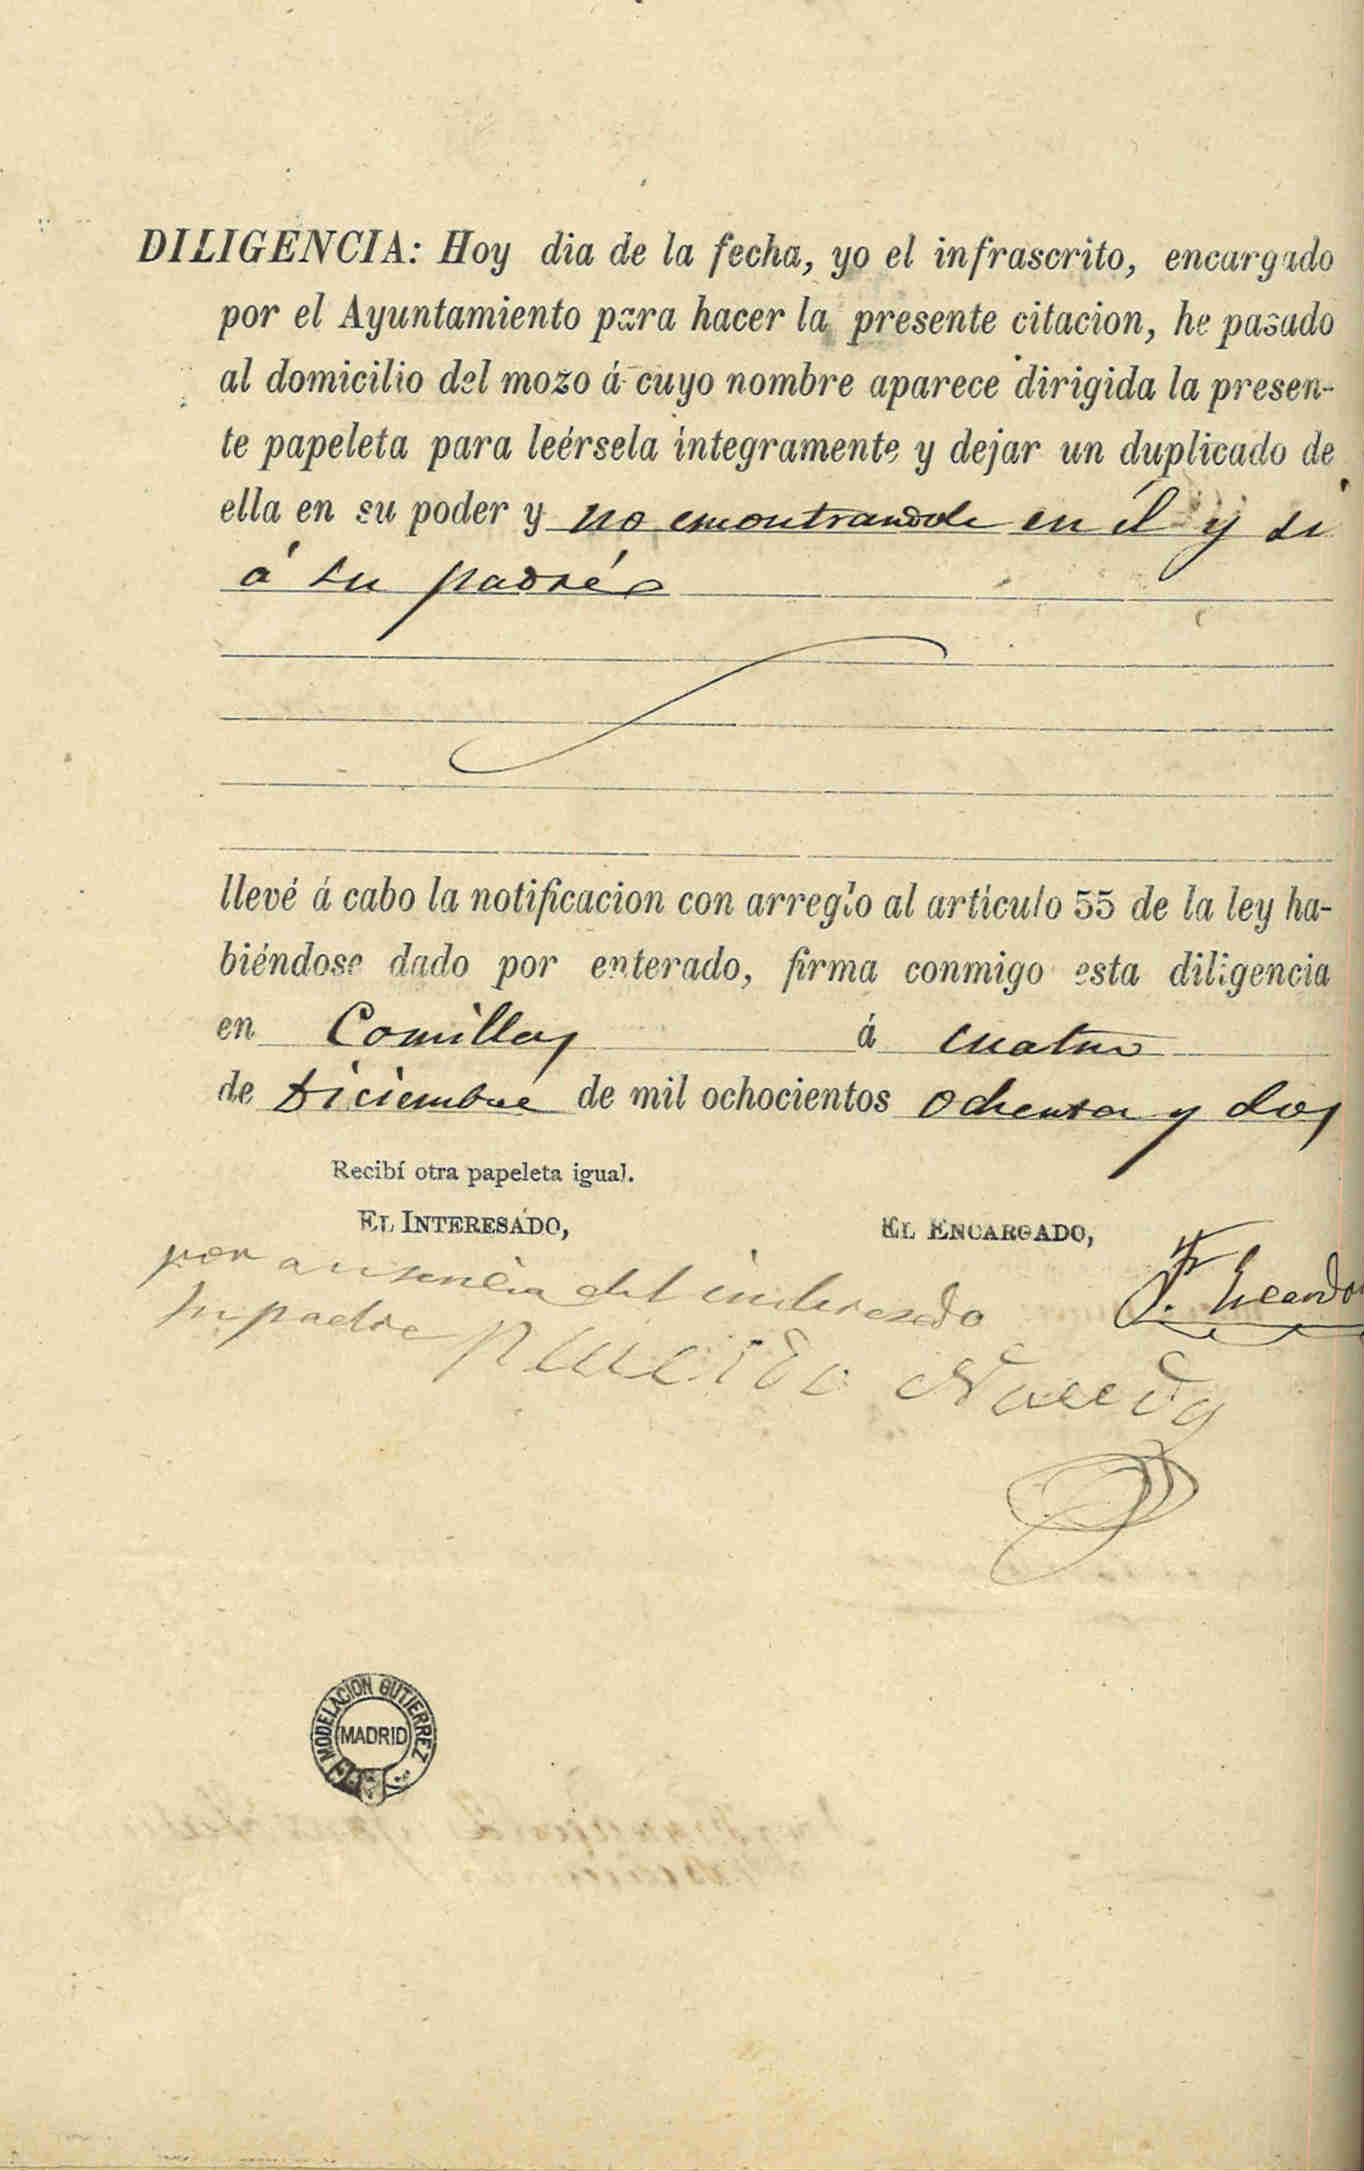 DILIGENCIA: Hoy dia de la fecha, yo el infrascrito, encargado
por el Ayuntamiento para hacer la presente citacion, he pasado
al domicilio del mozo á cuyo nombre aparece dirigida la presen-
te papeleta para leérsela integramente y dejar un duplicado de
ella en su poder y no encontrandole en él y si
á su padre
llevé á cabo la notificacion con arreglo al artículo 55 de la ley ha-
biéndose dado por enterado, firma conmigo esta diligencia
en Comillas á cuatro
de Diciembre de mil ochocientos ochenta y dos
Recibí otra papeleta igual.
EL INTERESADO, EL ENCARGADO,
por ausencia del interesado
su padre Placido Noceda
MODELACION GUTIERREZ
MADRID